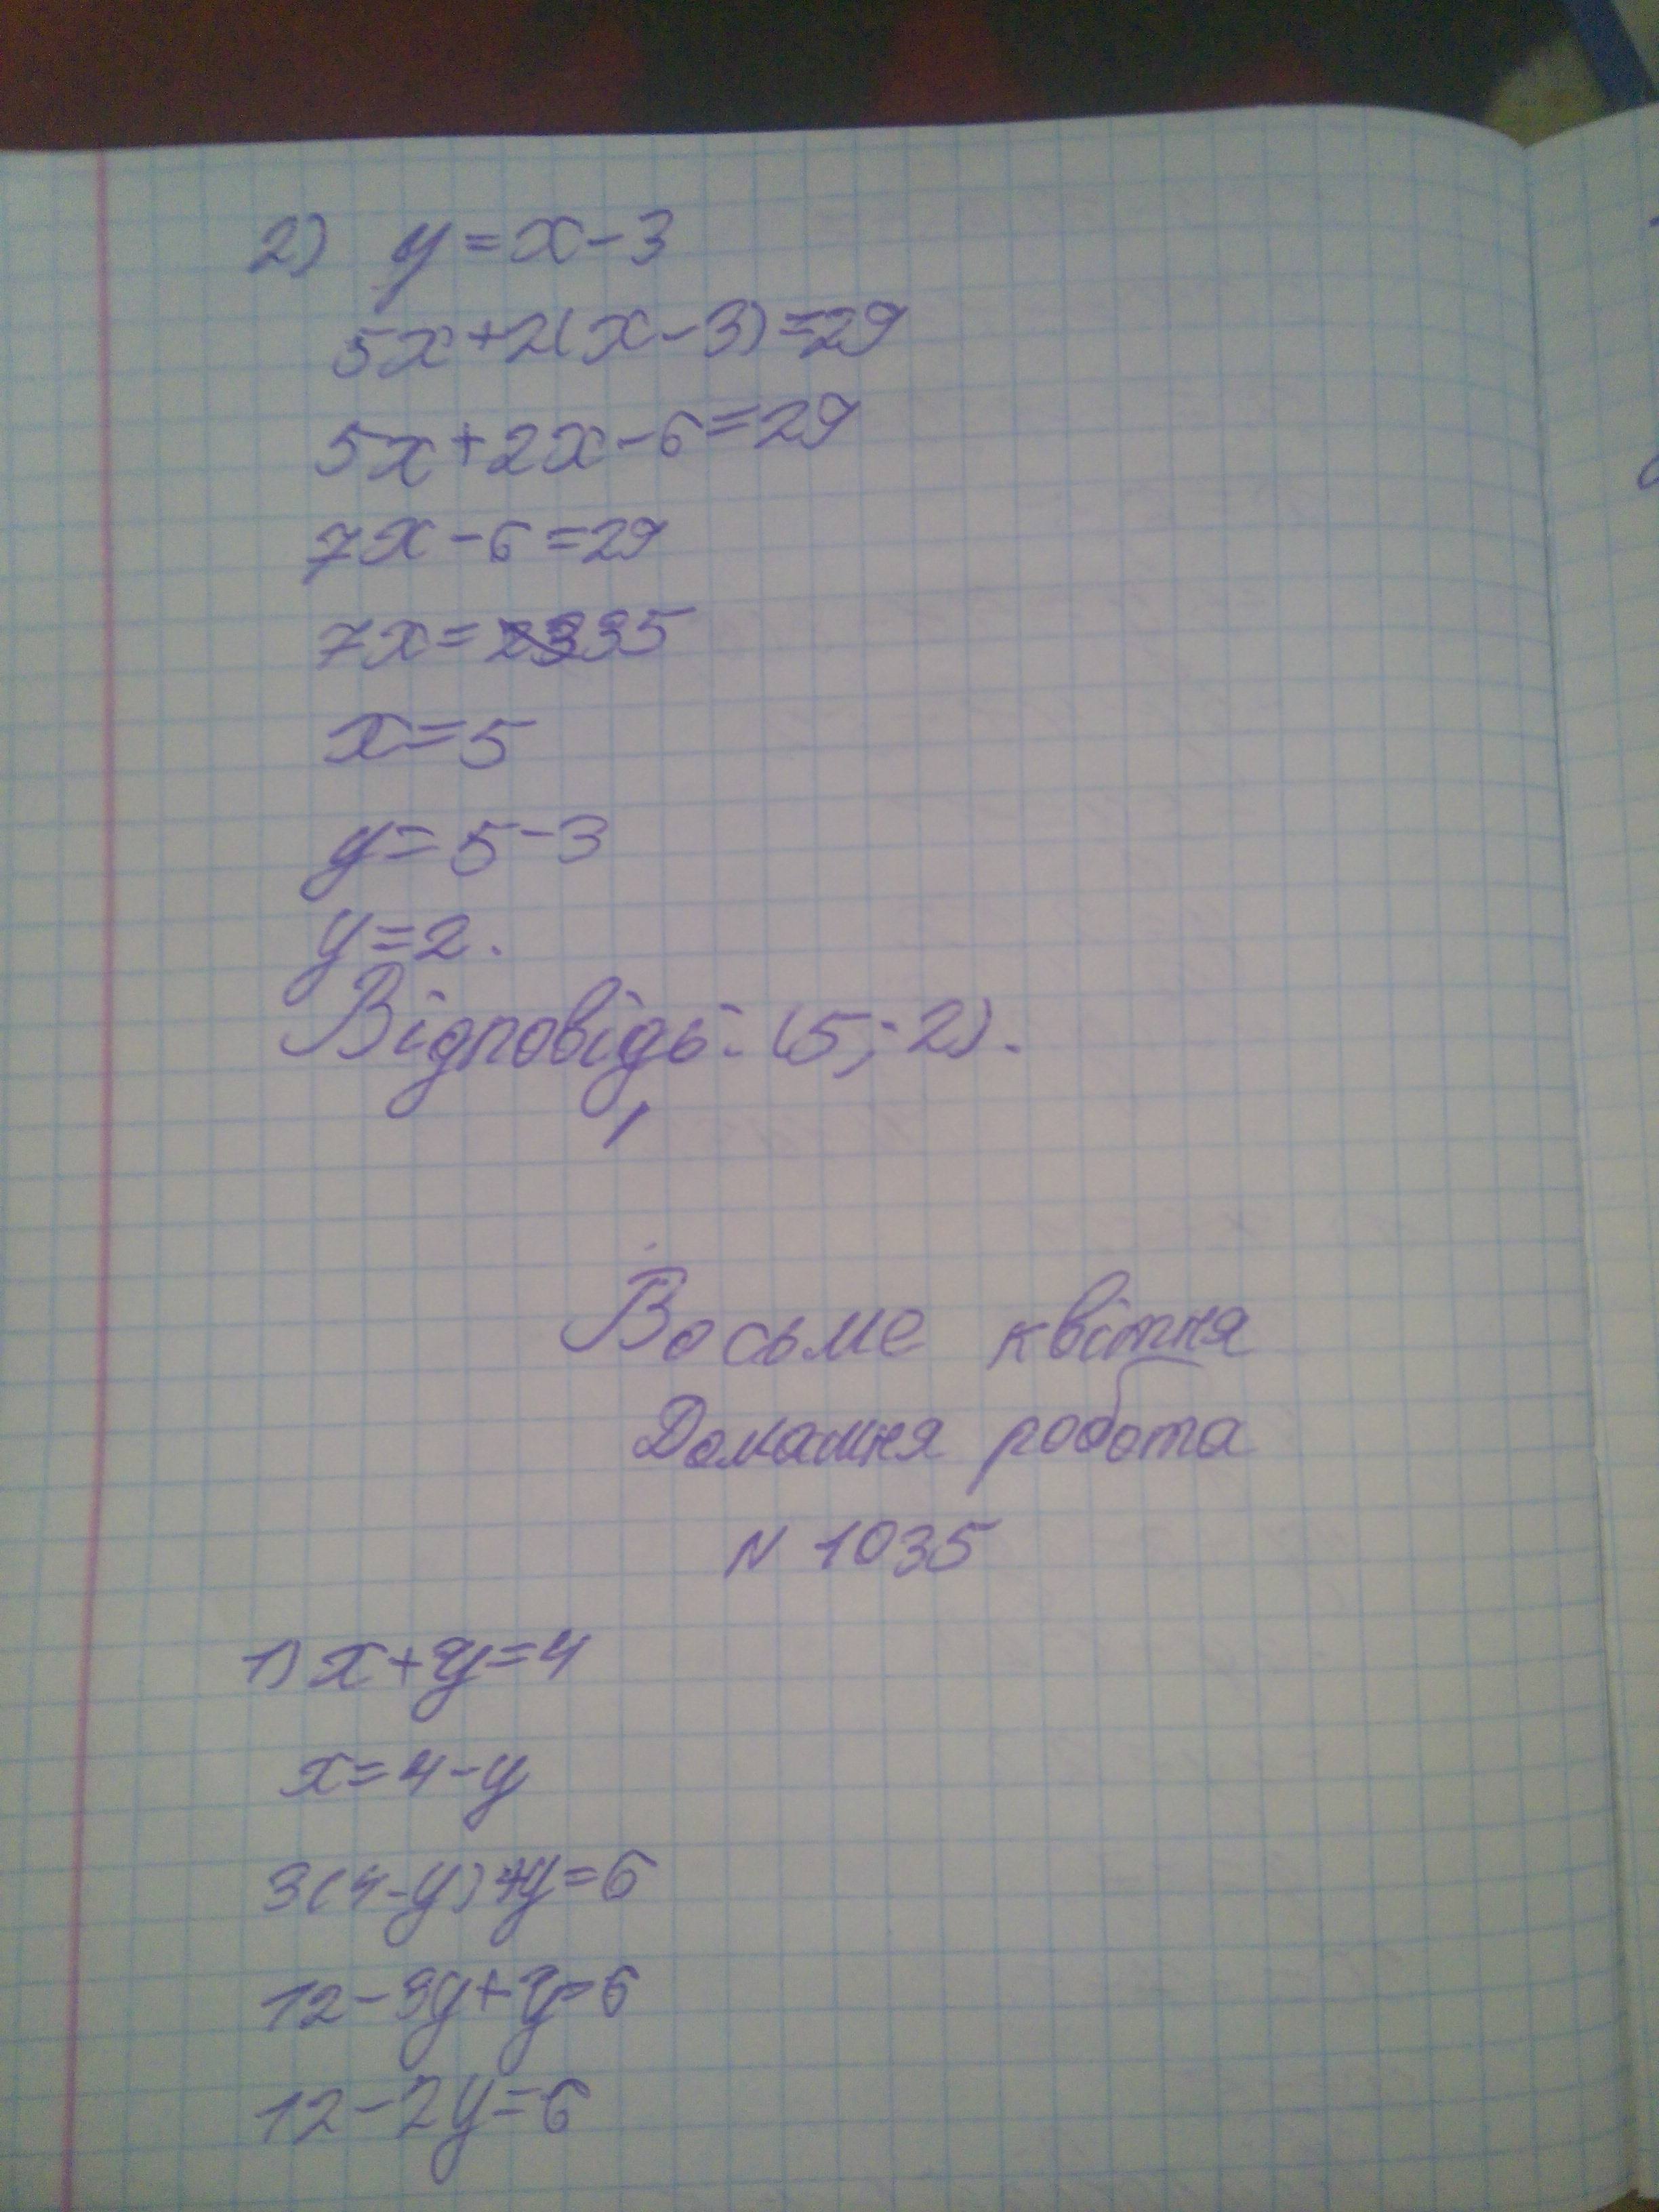 2) y=x-3
5x+2(x-3)=29
5x+2x-6=29
7x-6=29
7x=35
x=5
y=5-3
y=2.
Відповідь: (5; 2).
Восьме квітня
Домашня робота
N 1035
1) x+y=4
x=4-y
3(4-y)+y=6
12-3y+y=6
12-2y=6